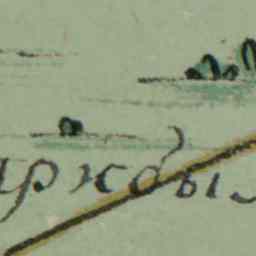 аржбы